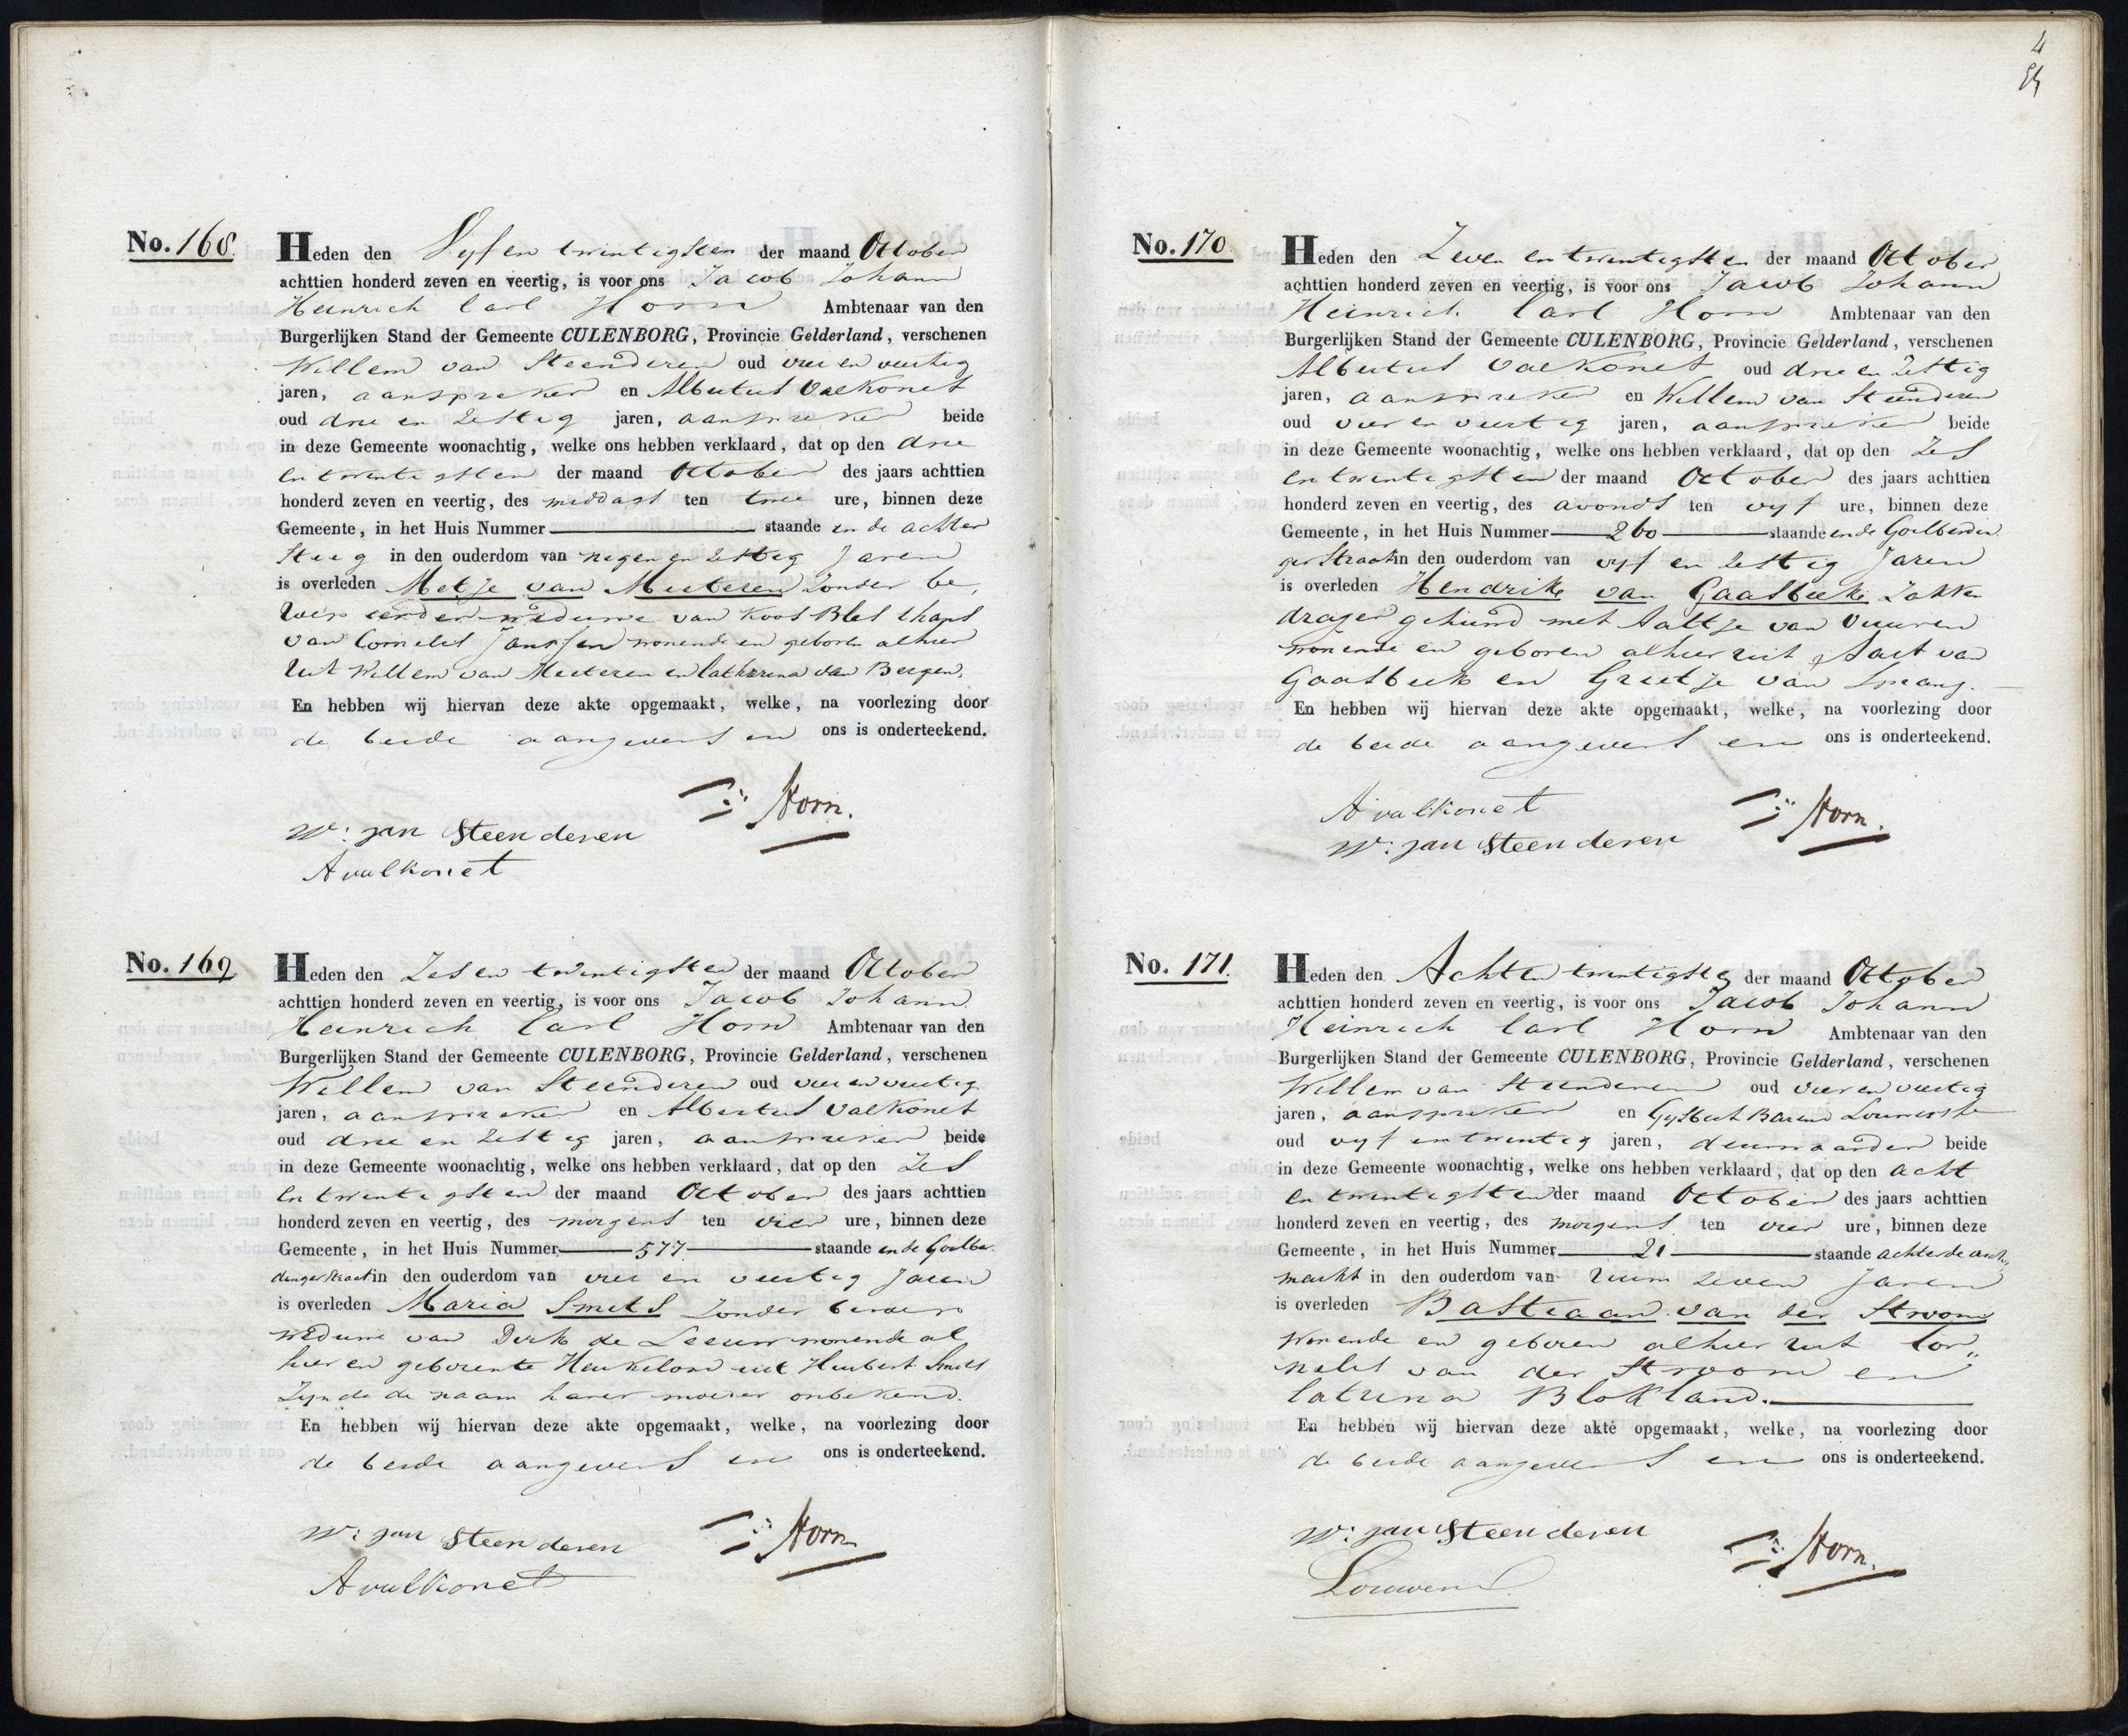 No. 168.
Heden den Vyf en twintigsten der maand October
achttien honderd zeven en veertig, is voor ons Jacob Johann
Heinrich Carl Horn Ambtenaar van den
Burgerlijken Stand der Gemeente CULENBORG, Provincie Gelderland, verschenen
Willem van Steenderen oud vier en veertig
jaren, aanspreker en Albertus Valkonet
oud drie en zestig jaren, aanspreker beide
in deze Gemeente woonachtig, welke ons hebben verklaard, dat op den drie
en twintigsten der maand October des jaars achttien
honderd zeven en veertig, des middags ten twee ure, binnen deze
Gemeente, in het Huis Nummer staande in de achter
steeg in den ouderdom van negen en zestig Jaren
is overleden Metje van Meeteren zonder be,
roep eerder weduwe van Koos Bles thans
van Cornelis Janssen wonende en geboren alhier
uit Willem van Meeteren en Catharina van Bergen.
En hebben wij hiervan deze akte opgemaakt, welke, na voorlezing door
de beide aangevers en ons is onderteekend.
Horn.
W: jan Steenderen
A valkonet
No. 169
Heden den Zes en twintigsten der maand October
achttien honderd zeven en veertig, is voor ons Jacob Johann
Heinrich Carl Horn Ambtenaar van den
Burgerlijken Stand der Gemeente CULENBORG, Provincie Gelderland, verschenen
Willem van Steenderen oud vier en veertig
jaren, aanspreker en Albertus Valkonet
oud drie en zestig jaren, aanspreker beide
in deze Gemeente woonachtig, welke ons hebben verklaard, dat op den Zes
en twintigsten der maand October des jaars achttien
honderd zeven en veertig, des morgens ten vier ure, binnen deze
Gemeente, in het Huis Nummer 577 staande in de Goilber
dingerstraat in den ouderdom van vier en veertig Jaren
is overleden Maria Smits zonder beroep
weduwe van Derk de Leeuw wonende al
hier en geboren te Heukelom uit Huibert Smits
Zynde de naam harer moeder onbekend.
En hebben wij hiervan deze akte opgemaakt, welke, na voorlezing door
de beide aangevers en ons is onderteekend.
W: jan Steenderen
Horn
A valkonet
No. 170
Heden den Zeven en twintigsten der maand October
achttien honderd zeven en veertig, is voor ons Jacob Johann
Heinrich Carl Horn Ambtenaar van den
Burgerlijken Stand der Gemeente CULENBORG, Provincie Gelderland, verschenen
Albertus Valkonet oud drie en zestig
jaren, aanspreker en Willem van Steenderen
oud vier en veertig jaren, aanspreker beide
in deze Gemeente woonachtig, welke ons hebben verklaard, dat op den Zes
en twintigsten der maand October des jaars achttien
honderd zeven en veertig, des avonds ten vyf ure, binnen deze
Gemeente, in het Huis Nummer 260 staande in de Goilberdin
ger Straat in den ouderdom van vyf en zestig Jaren
is overleden Hendrik van Gaasbeek Zakke
drager gehuwd met Aaltje van Vuuren
wonende en geboren alhier uit Aart van
Gaasbeek en Grietje van Spreang.
En hebben wij hiervan deze akte opgemaakt, welke, na voorlezing door
de beide aangevers en ons is onderteekend.
A valkonet
Horn.
W: jan Steenderen
No. 171.
Heden den Achten twintigste der maand October
achttien honderd zeven en veertig, is voor ons Jacob Johann
Heinrich Carl Horn Ambtenaar van den
Burgerlijken Stand der Gemeente CULENBORG, Provincie Gelderland, verschenen
Willem van Steenderen oud vier en veertig
jaren, aanspreker en Gysbert Barend
oud vyf en twintig jaren, deurwaarder beide
in deze Gemeente woonachtig, welke ons hebben verklaard, dat op den acht
en twintigsten der maand October des jaars achttien
honderd zeven en veertig, des morgens ten vier ure, binnen deze
Gemeente, in het Huis Nummer 21 staande achter de
markt in den ouderdom van ruim zeven Jaren
is overleden Bastiaan van der Stroom
Wonende en geboren alhier uit Cor„
nelis van der Stroom en
Catrina Blokland.
En hebben wij hiervan deze akte opgemaakt, welke, na voorlezing door
de beide aangevers en ons is onderteekend.
W: jan Steenderen
Horn.
Louwens